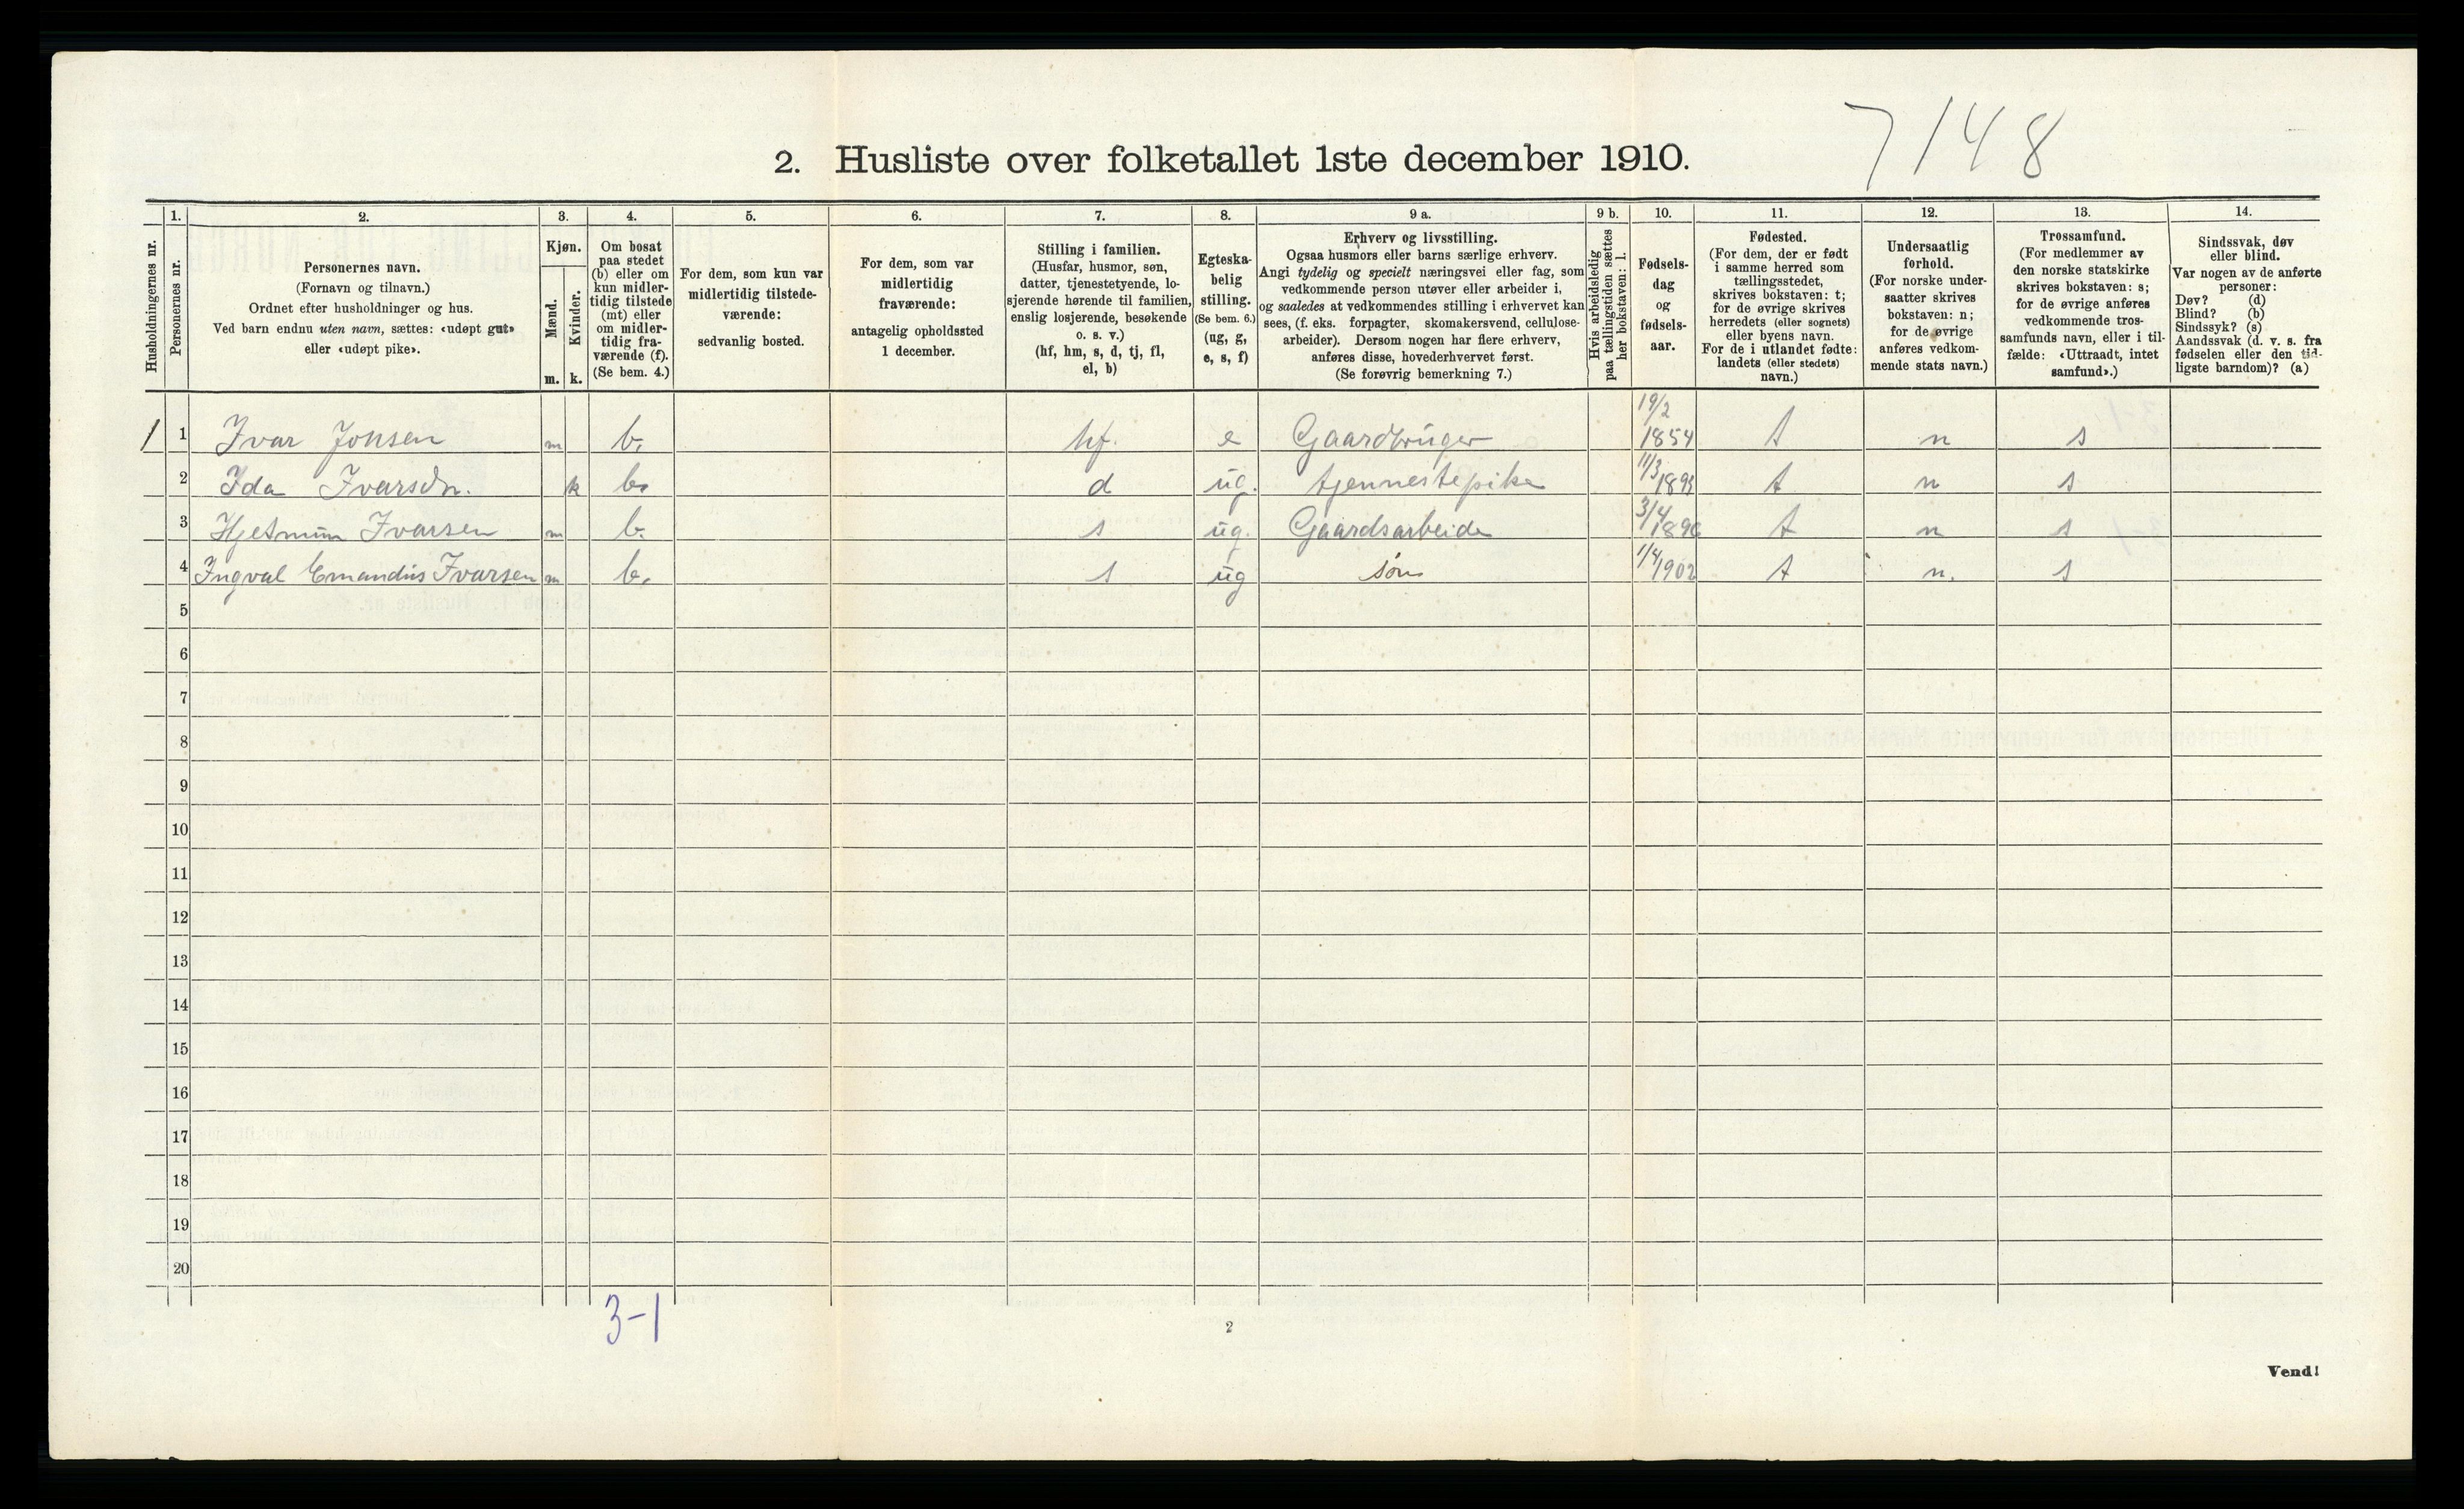 7148
2. Husliste over folketallet 1ste december 1910.
Husholdningernes nr.
1.
Personernes nr.
2.
Personernes navn.
(Fornavn og tilnavn.)
Ordnet efter husholdninger og hus.
Ved barn endnu uten navn, sættes: «udøpt gut»
eller «udøpt pike».
3.
Kjøn.
Mænd.
Kvinder.
m. k.
4.
Om bosat
paa stedet
(b) eller om
kun midler-
tidig tilstede
(mt) eller
om midler-
tidig fra-
værende (f).
(Se bem. 4.)
5.
For dem, som kun var
midlertidig tilstede-
værende:
sedvanlig bosted.
6.
For dem, som var
midlertidig
fraværende:
antagelig opholdssted
1 december.
7.
Stilling i familien.
(Husfar, husmor, søn,
datter, tjenestetyende, lo-
sjerende hørende til familien,
enslig losjerende, besøkende
o. s. v.)
(hf, hm, s, d, tj, fl,
el, b)
8.
Egteska-
belig
stilling.
(Se bem. 6.)
(ug, g,
e, s, f)
9 a.
Erhverv og livsstilling.
Ogsaa husmors eller barns særlige erhverv.
Angi tydelig og specielt næringsvei eller fag, som
vedkommende person utøver eller arbeider i,
og saaledes at vedkommendes stilling i erhvervet kan
sees, (f. eks. forpagter, skomakersvend, cellulose-
arbeider). Dersom nogen har flere erhverv,
anføres disse, hovederhvervet først.
(Se forøvrig bemerkning 7.)
9 b.
Hvis arbeidsledig
paa tællingstiden sættes
her bokstaven: l.
10.
Fødsels-
dag
og
fødsels-
aar.
11.
Fødested.
(For dem, der er født
i samme herred som
tællingsstedet,
skrives bokstaven: t;
for de øvrige skrives
herredets (eller sognets)
eller byens navn.
For de i utlandet fødte:
landets (eller stedets)
navn.)
12.
Undersaatlig
forhold.
(For norske under-
saatter skrives
bokstaven: n;
for de øvrige
anføres vedkom-
mende stats navn.)
13.
Trossamfund.
(For medlemmer av
den norske statskirke
skrives bokstaven: s;
for de øvrige anføres
vedkommende tros-
samfunds navn, eller i til-
fælde: «Uttraadt, intet
samfund».)
14.
Sindssvak, døv
eller blind.
Var nogen av de anførte
personer:
Døv? (d)
Blind? (b)
Sindssyk? (s)
Aandssvak (d. v. s. fra
fødselen eller den tid-
ligste barndom)? (a)
1 1 Ivar Jonsen m b. hf. e Gaardbruger 19/2 1854 t n s
2 Ida Ivarsdn. k b. d ug. tjennestepike 11/3 t n s
3 Ivarsen m b. s ug. Gaardsarbeide 3/4 t n s
4 Ingval Emandus Ivarsen m b. s ug søn 1/4 1902 t n. s
5
6
7
8
9
10
11
12
13
14
15
16
17
18
19
20
3-1
2
Vend!